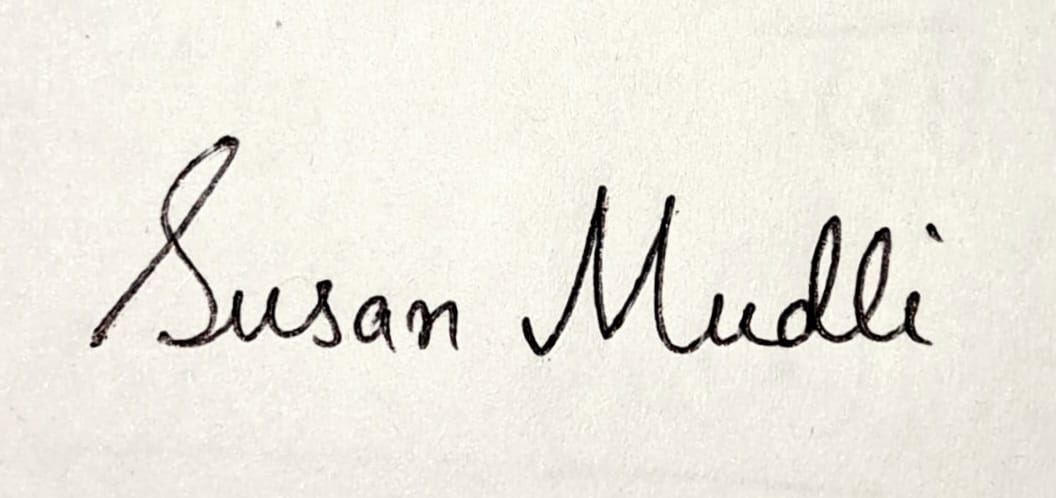 Susan Mudli